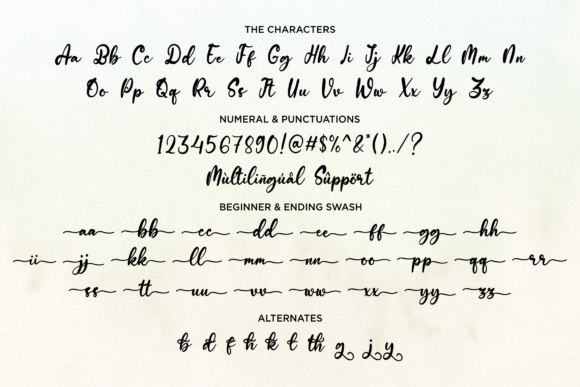 THE CHARACTERS
Aa Bb Cc Dd Ee Ff Gg Hh Ii Jj Kk Ll Mm Nn
Oo Pp Qq Rr Ss Tt Uu Vv Ww Xx Yy Zz
NUMERAL & PUNCTUATIONS
1234567890!@#$%^&*()../?
Mùltiliñgúál Sûppört
BEGINNER & ENDING SWASH
aa bb cc dd ee ff gg hh
ii jj kk ll mm nn oo pp qq rr
ss tt uu vv ww xx yy zz
ALTERNATES
b d f h k t th g j y